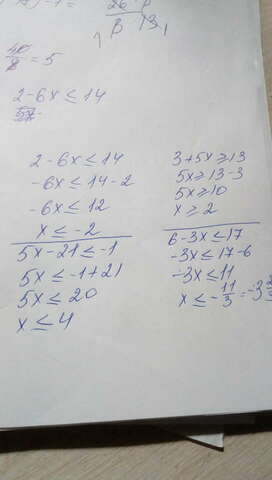 26
13
40/8 = 5
2-6x ≤ 14
2-6x ≤ 14
-6x ≤ 14-2
-6x ≤ 12
x ≤ -2
5x-21 ≤ -1
5x ≤ -1+21
5x ≤ 20
x ≤ 4
3+5x ≥ 13
5x ≥ 13-3
5x ≥ 10
x ≥ 2
6-3x ≤ 17
-3x ≤ 17-6
-3x ≤ 11
x ≤ -11/3 = -3 2/3